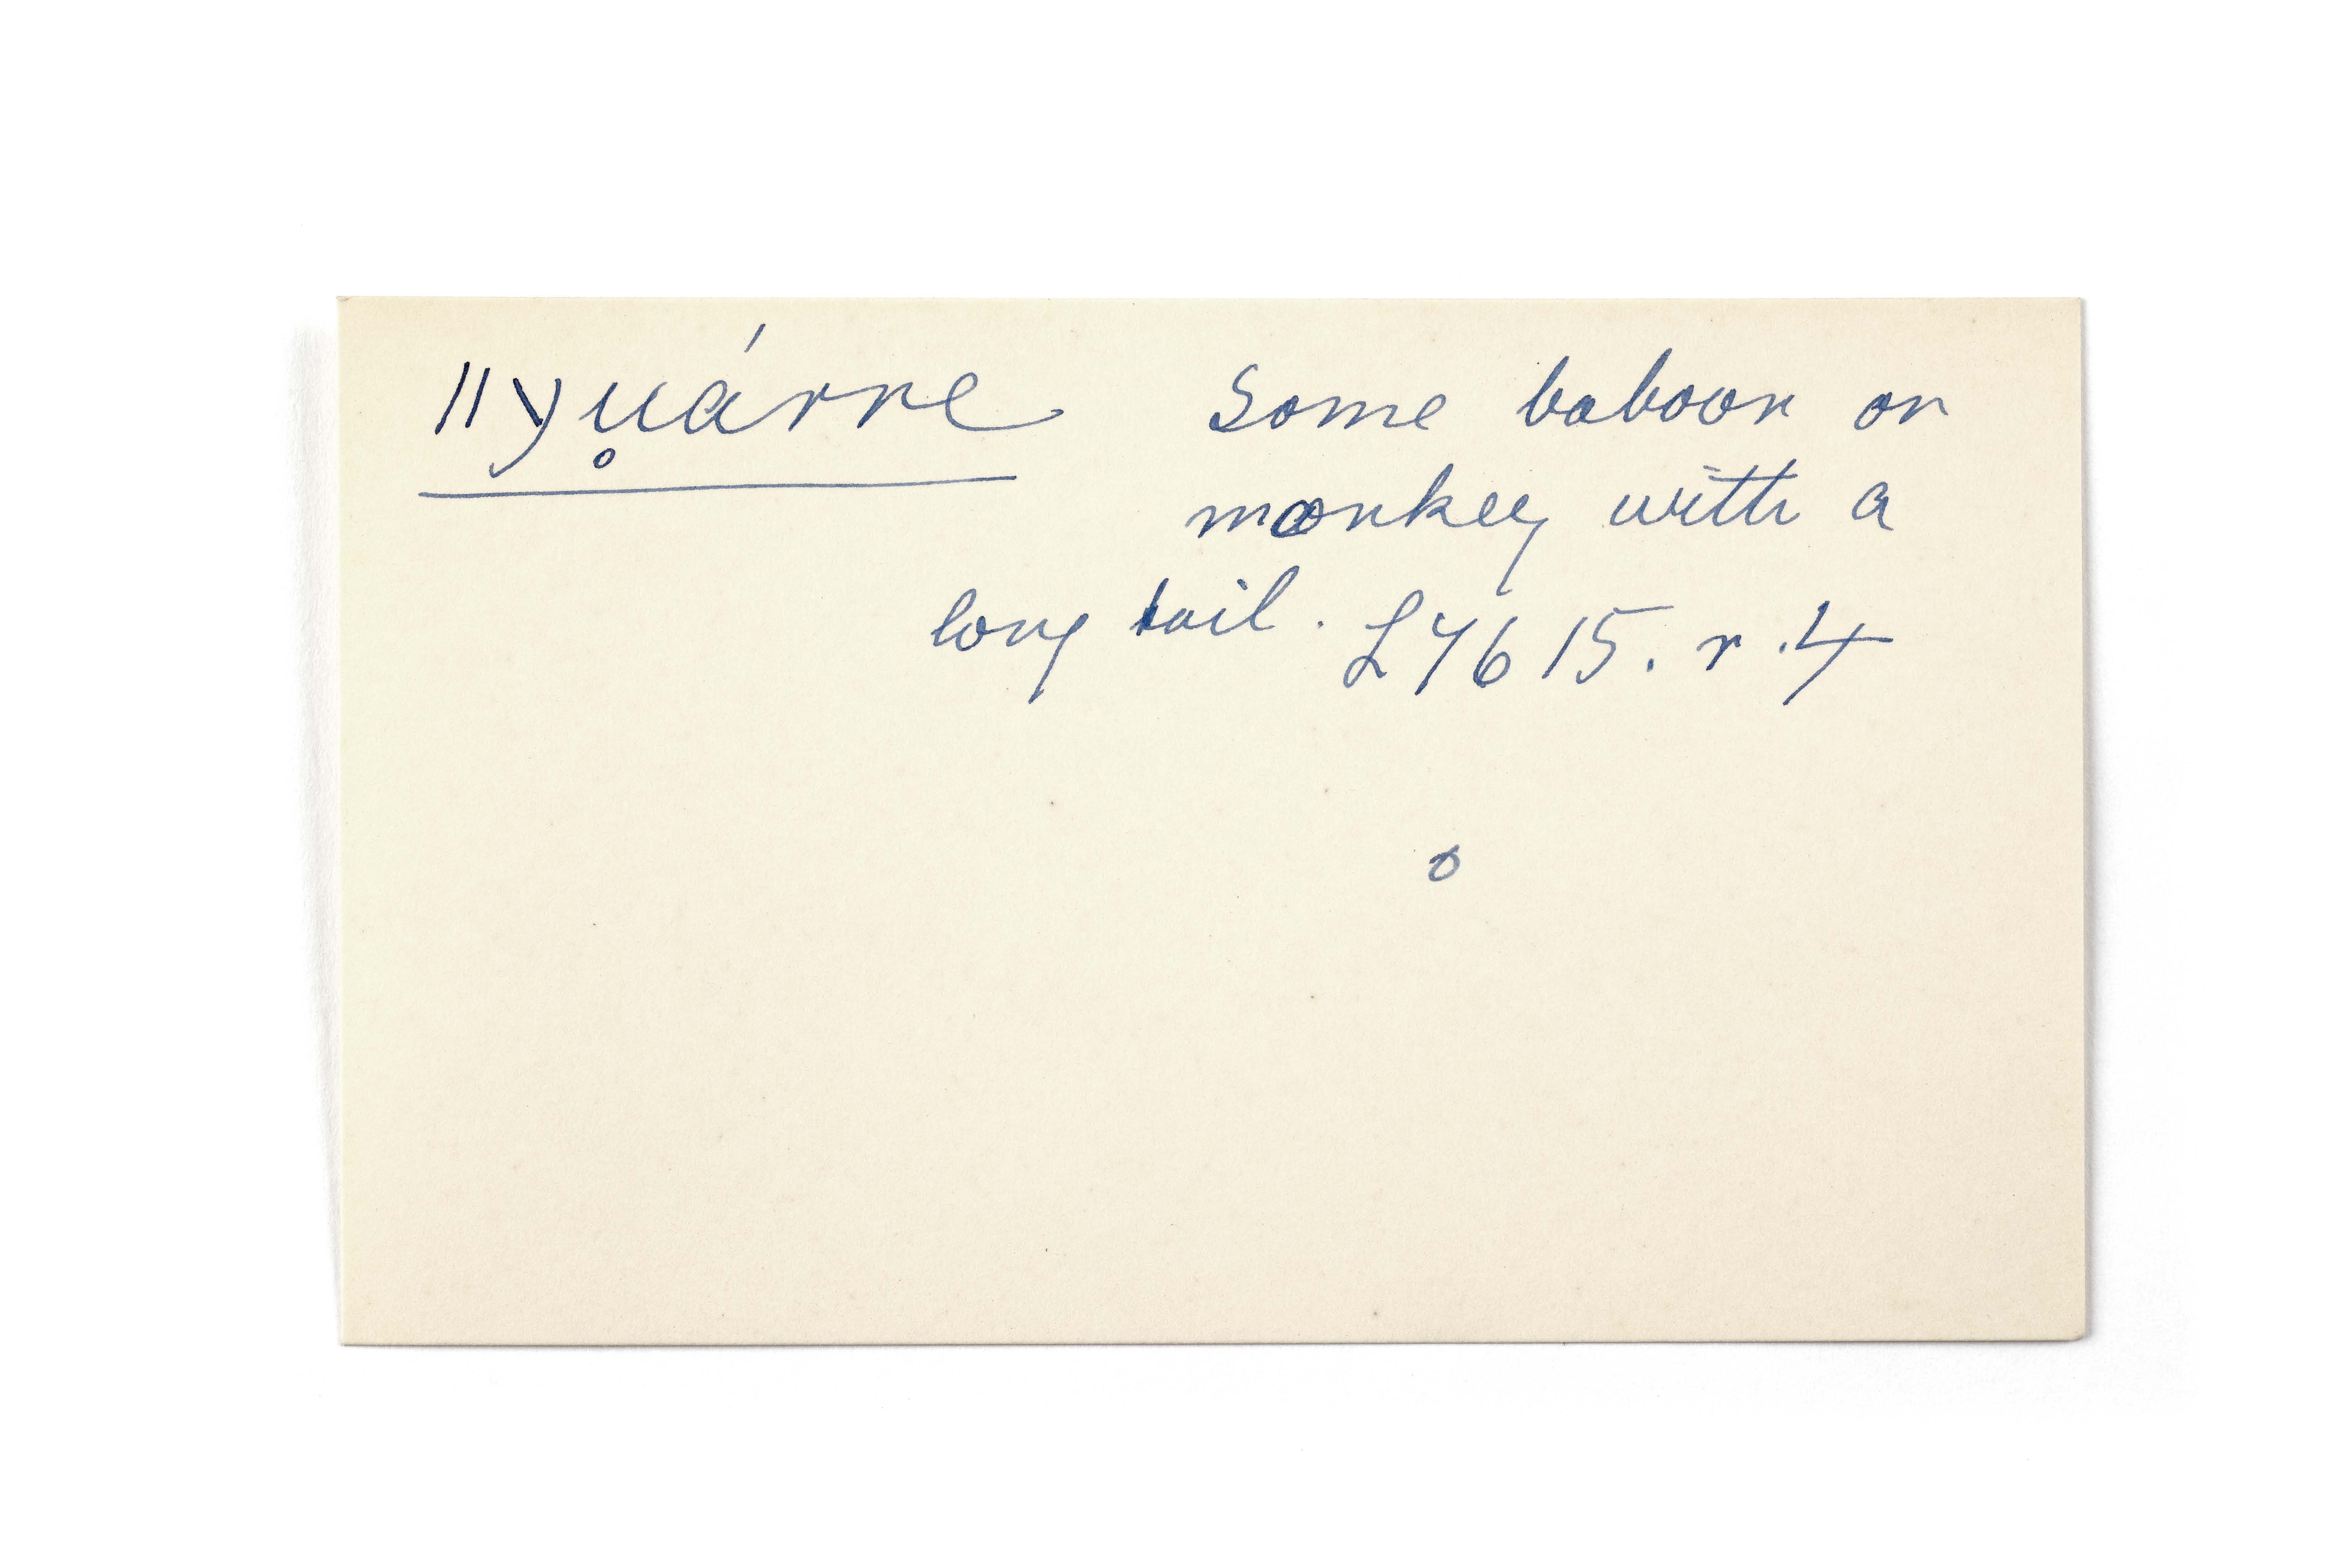 ǁyu̥árre Some baboon or
monkey with a
long tail. L 7615. r. 4